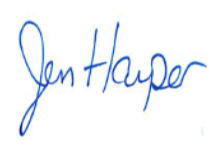 Jen Harper